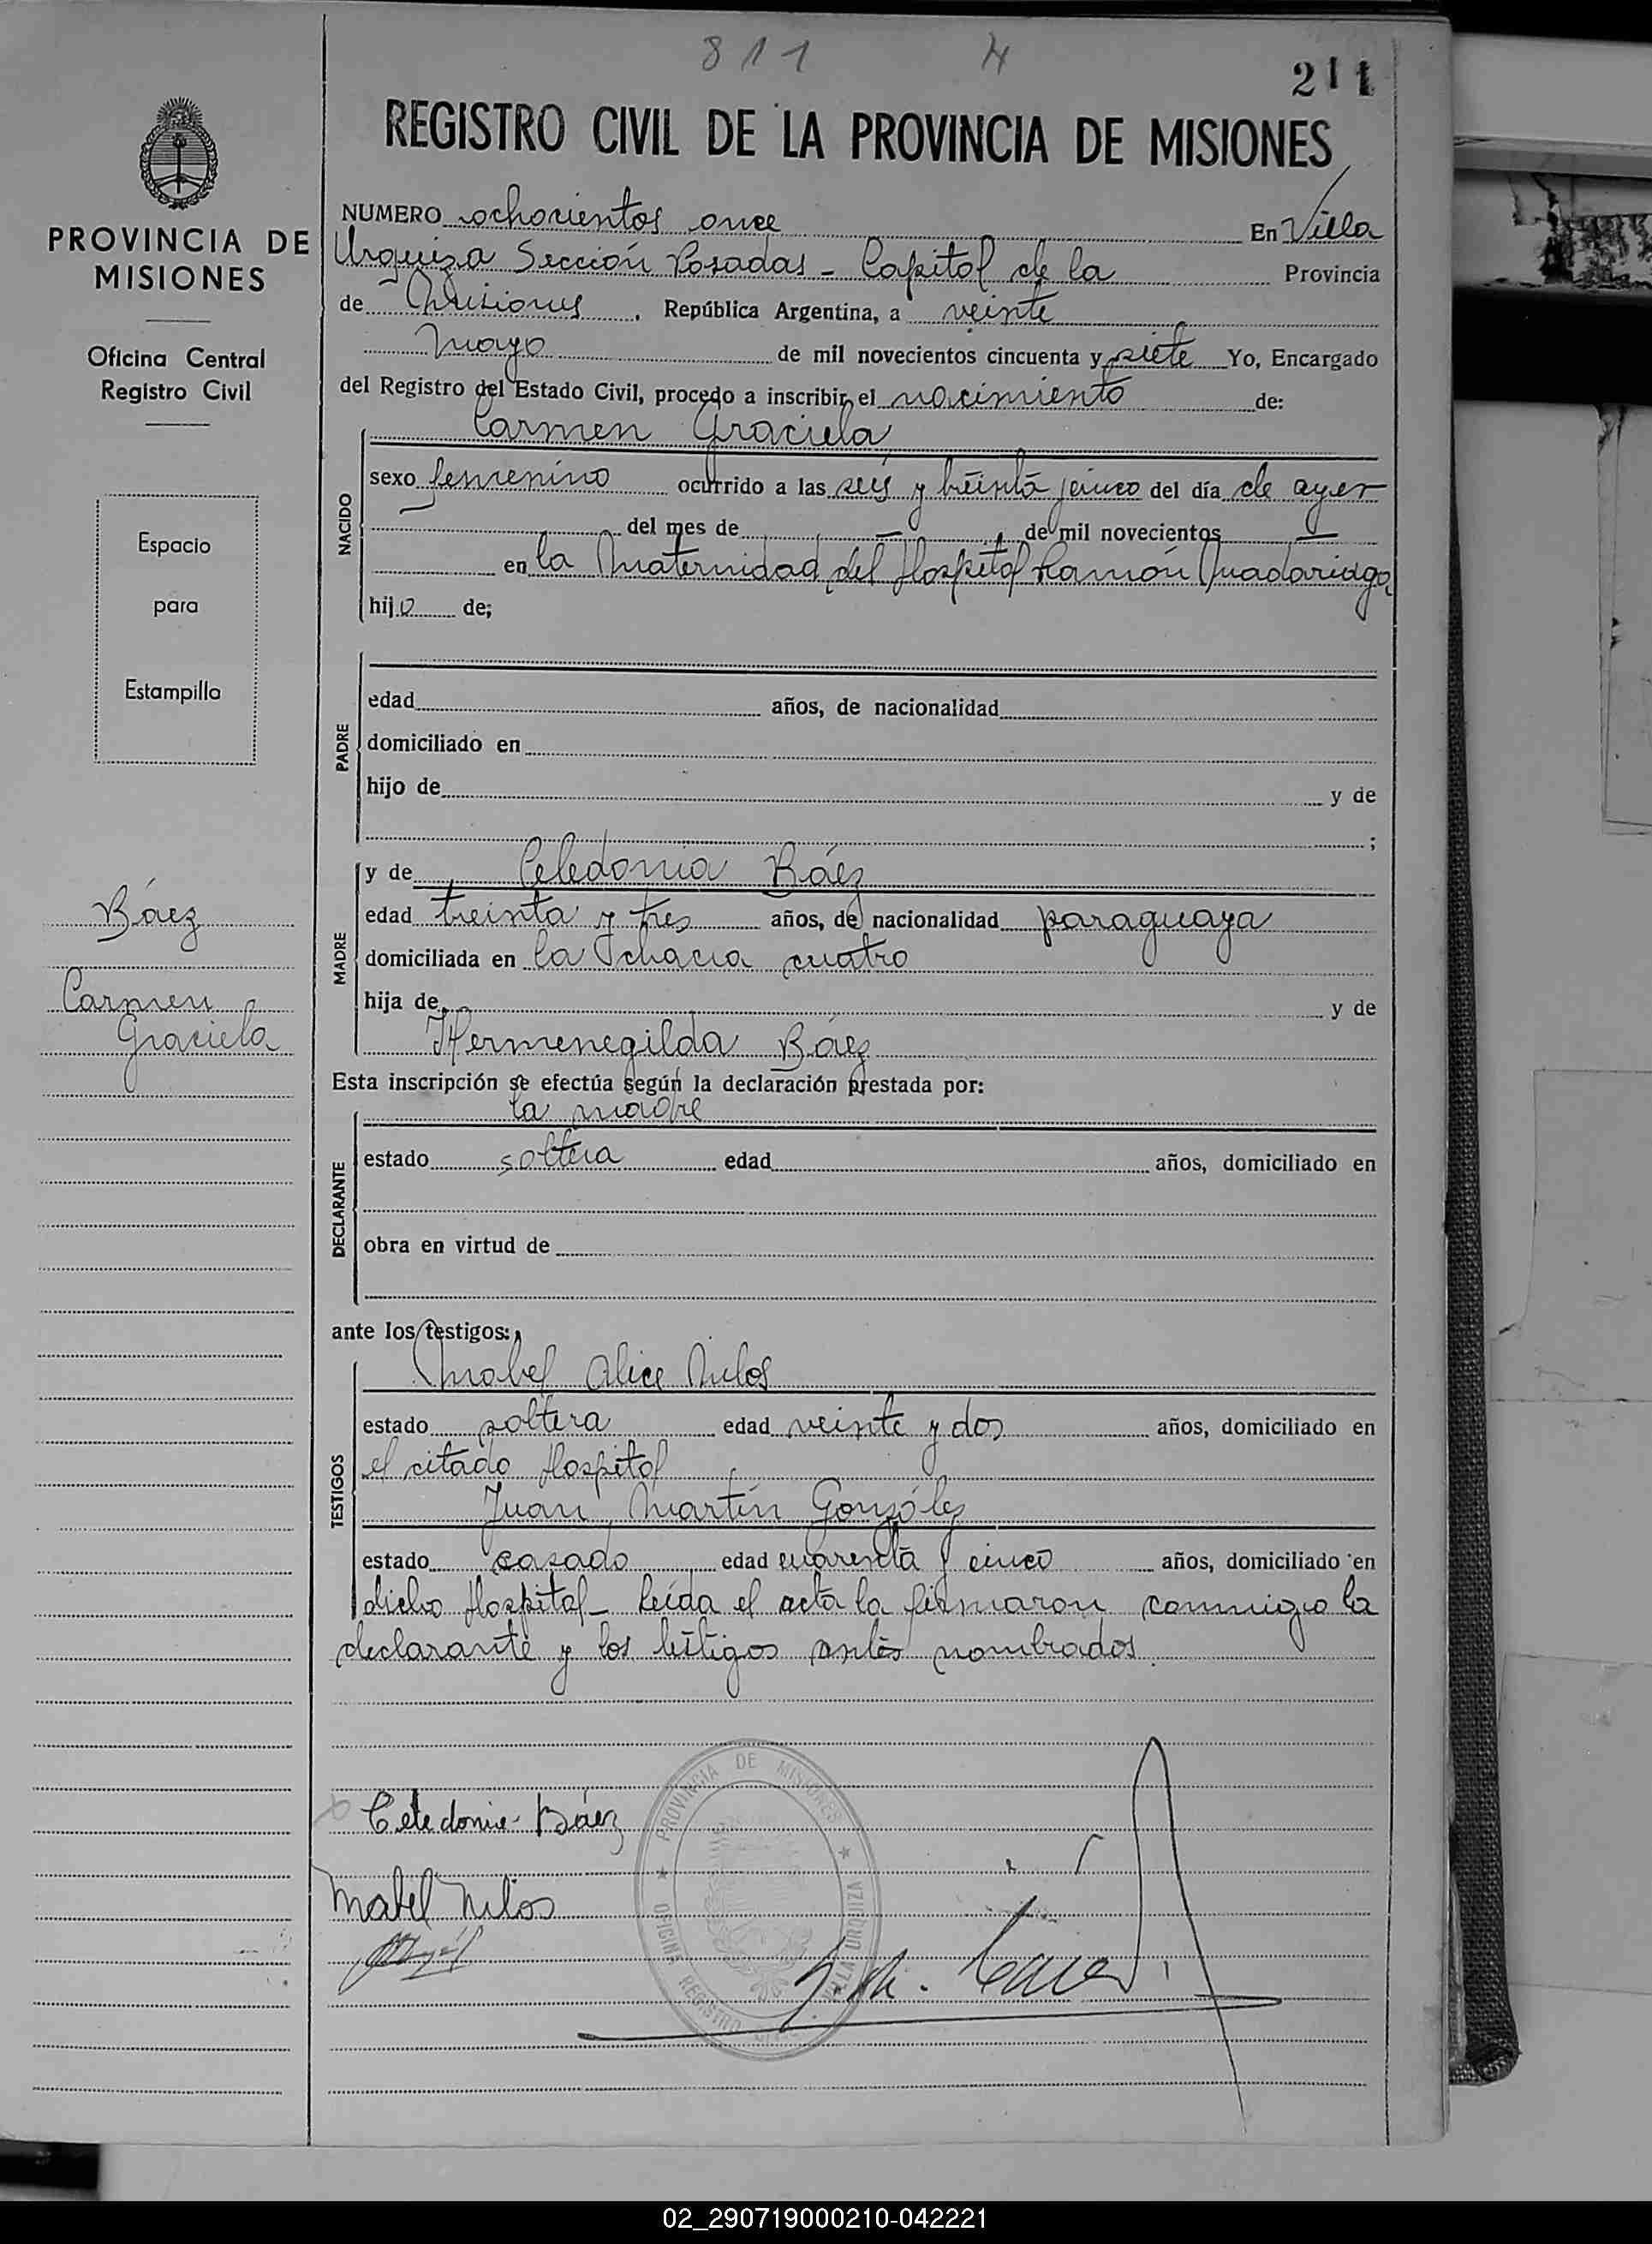 811 4
211
REGISTRO CIVIL DE LA PROVINCIA DE MISIONES
PROVINCIA DE
MISIONES
Oficina Central
Registro Civil
Espacio
para
Estampilla
Báez
Carmen
Graciela
NUMERO ochocientos once En Villa
Urquiza Sección Posadas - Capital de la Provincia
de Misiones, República Argentina, a veinte
Mayo de mil novecientos cincuenta y siete Yo, Encargado
del Registro del Estado Civil, procedo a inscribir el nacimiento de:
NACIDO
Carmen Graciela
sexo femenino ocurrido a las seis y treinta y cinco del día de ayer
del mes de — de mil novecientos —
en la Maternidad del Hospital Ramón Madariaga
hija de;
PADRE
edad años, de nacionalidad
domiciliado en
hijo de y de
;
MADRE
y de Celedonia Báez
edad treinta y tres años, de nacionalidad paraguaya
domiciliada en la chacra cuatro
hija de y de
Hermenegilda Báez
Esta inscripción se efectúa según la declaración prestada por:
DECLARANTE
la madre
estado soltera edad años, domiciliado en
obra en virtud de
ante los testigos:
TESTIGOS
Mabel Alice Milos
estado soltera edad veinte y dos años, domiciliado en
el citado Hospital
Juan Martín González
estado casado edad cuarenta y cinco años, domiciliado en
dicho Hospital - Leída el acta la firmaron conmigo la
declarante y los testigos antes nombrados
Celedonia Báez
Mabel Milos
PROVINCIA DE MISIONES
OFICINA REGISTRO CIVIL
VILLA URQUIZA
02_290719000210-042221